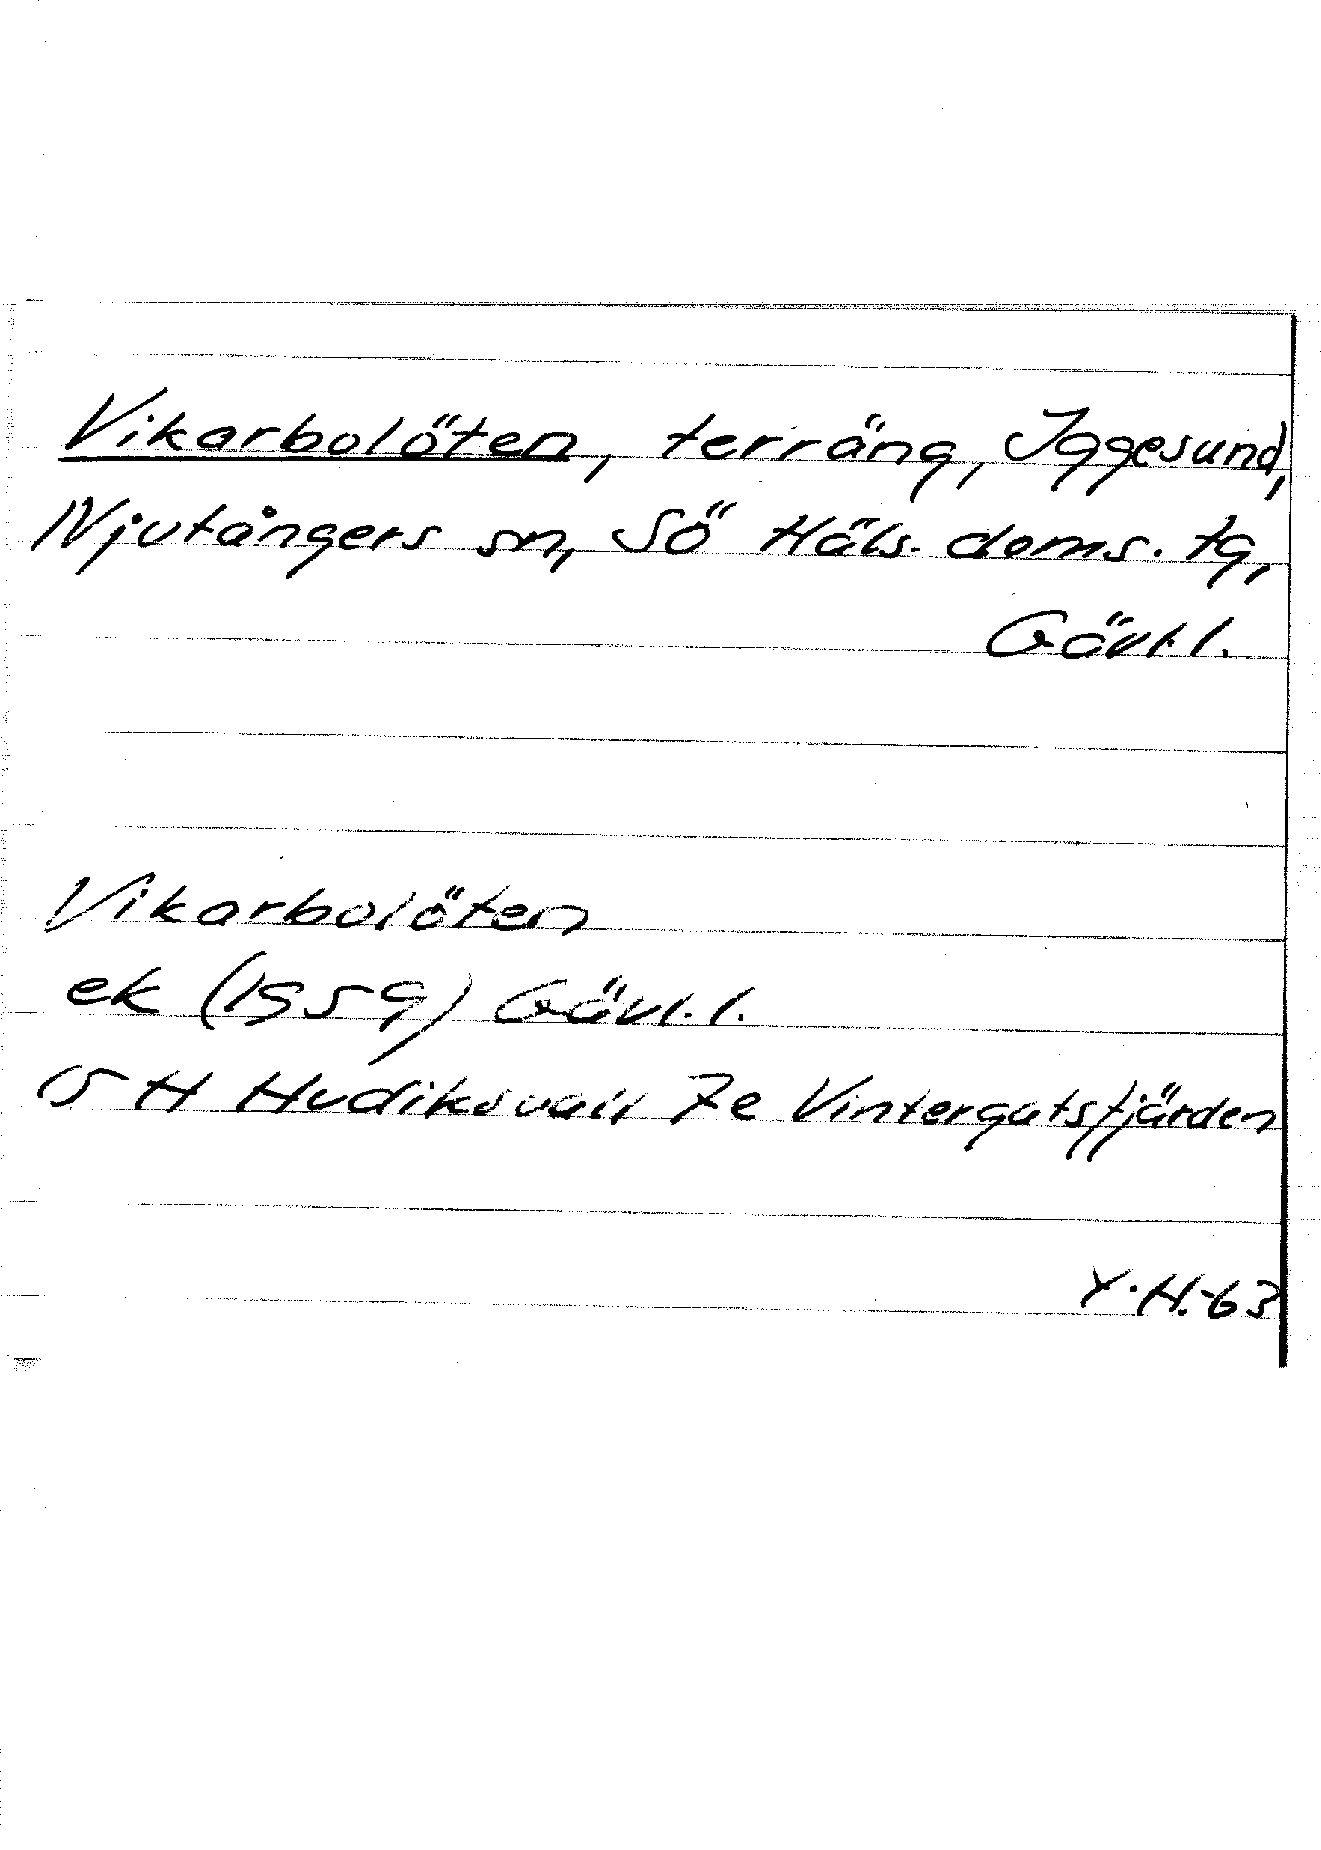 Vikarbolöten, terräng, Iggesund,
Njutångers sn, Sö Häls. doms. tg,
Gävl. l.
Vikarbolöten
ek (1959) Gävl. l.
15 H Hudiksvall 7e Vintergatsfjärden
Y.H.-63